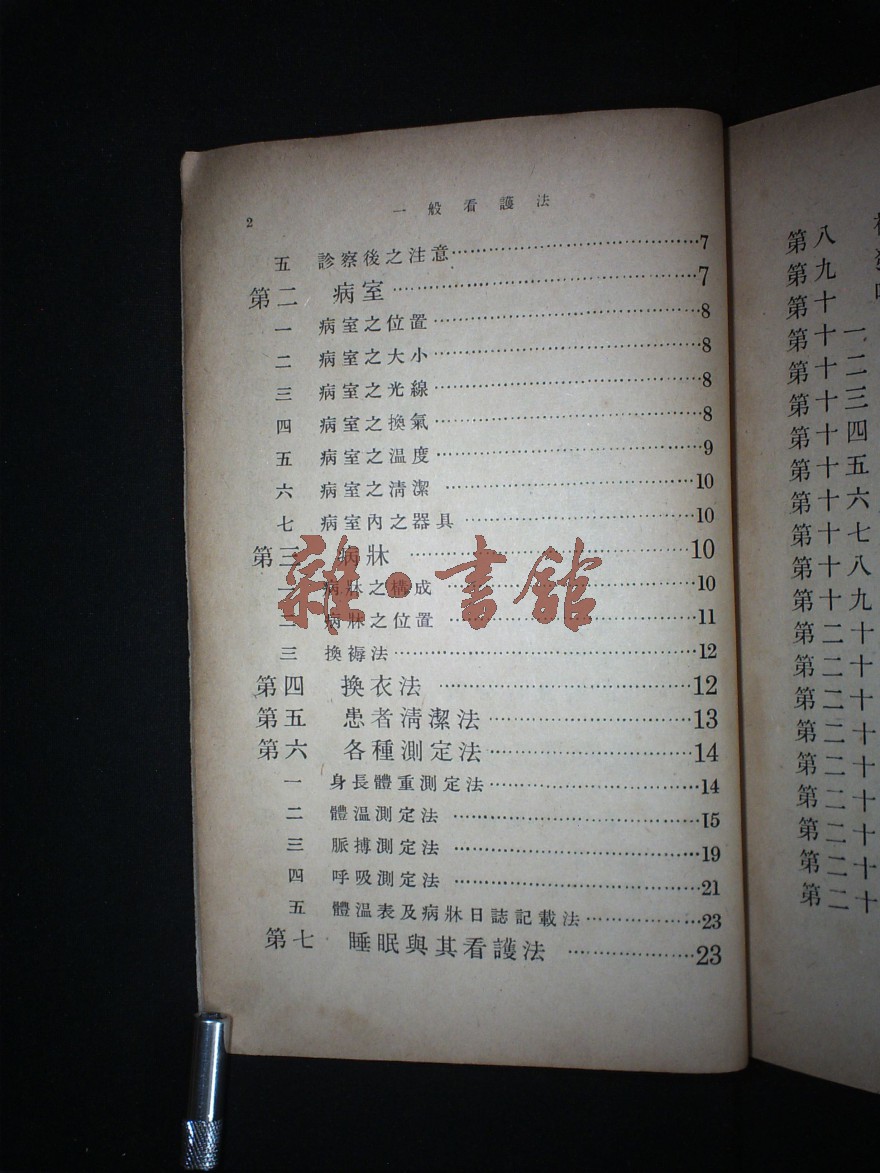 2
一般看護法
五 診察後之注意……7
第二 病室……7
一 病室之位置……8
二 病室之大小……8
三 病室之光線……8
四 病室之換氣……8
五 病室之温度……9
六 病室之淸潔……10
七 病室內之器具……10
第三 病牀……10
一 病牀之構成……10
二 病牀之位置……11
三 換褥法……12
第四 換衣法……12
第五 患者淸潔法……13
第六 各種測定法……14
一 身長體重測定法……14
二 體温測定法……15
三 脈搏測定法……19
四 呼吸測定法……21
五 體温表及病牀日誌記載法……23
第七 睡眠與其看護法……23
雜·書館
第八
第九
第十
第十一
第十二
第十三
第十四
第十五
第十六
第十七
第十八
第十九
第二十
第二十
第二十
第二十
第二十
第二十
第二十
第二十
第二十